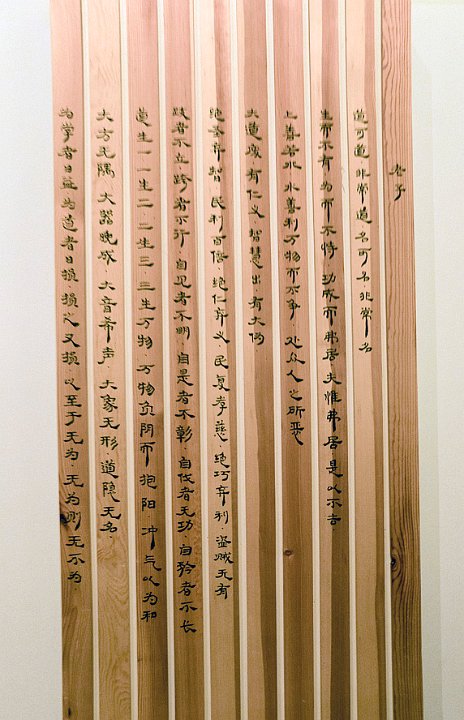 老子
道可道·非常道·名可名·非常名
生而不有·为而不恃·功成而弗居·夫惟弗居·是以不去·
上善若水·水善利万物而不争·处众人之所恶·
大道废·有仁义·智慧出·有大伪
绝圣弃智·民利百倍·绝仁弃义·民复孝慈·绝巧弃利·盗贼无有
跂者不立·跨者不行·自见者不明·自是者不彰·自伐者无功·自矜者不长
道生一·一生二·二生三·三生万物·万物负阴而抱阳·冲气以为和
大方无隅·大器晚成·大音希声·大象无形·道隐无名·
为学者日益·为道者日损·损之又损·以至于无为·无为则无不为·